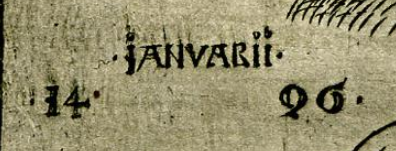 ·JANVARII·
·14· 96·